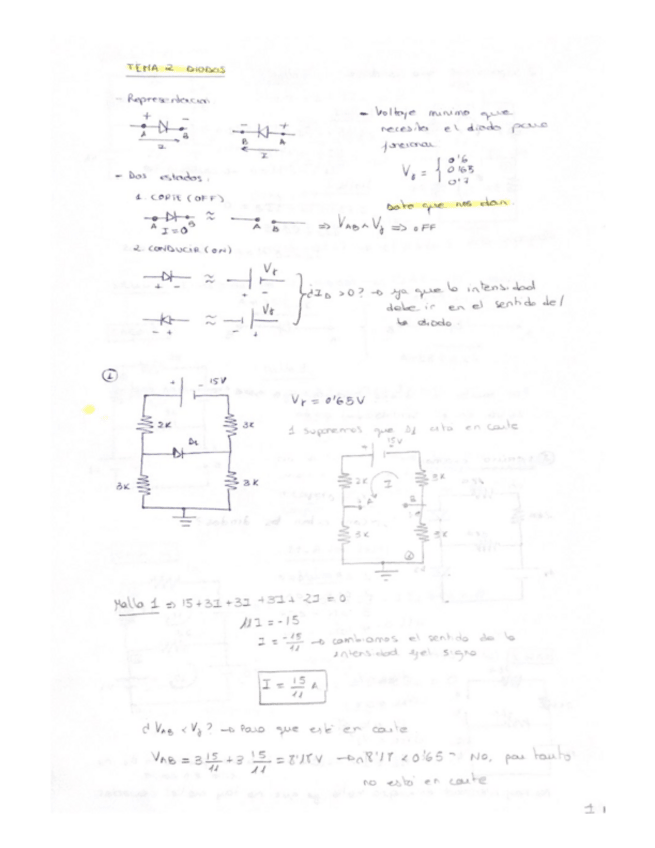 TEMA 2 DIODOS
- Representacion
+ -
A B
I
- +
B A
I
- Voltaje minimo que
necesita el diodo para
funcionar
Vγ = { 0'6
0'65
0'7
Dato que nos dan.
- Dos estados:
1. CORTE (OFF)
A B ≈ A B ⇒ VAB < Vγ ⇒ OFF
I=0
2. CONDUCIR (ON)
+ - ≈ Vγ + -
- + ≈ Vγ - +
¿ID > 0? → ya que la intensidad
debe ir en el sentido del
diodo.
①
+ - 15V
2K
3K
D1
3K
3K
Vγ = 0'65V
1 suponemos que D1 esta en corte
+ 15V -
2K
I
3K
A
B
3K
3K
Malla 1 ⇒ 15+3I+3I+3I+2I=0
11I = -15
I = -15/11 → cambiamos el sentido de la
intensidad y el signo
I = 15/11 A
¿ VAB < Vγ ? → Para que esté en corte
VAB = 3 15/11 + 3 15/11 = 8'18V → ¿8'18 < 0'65? No, por tanto
no está en corte
1